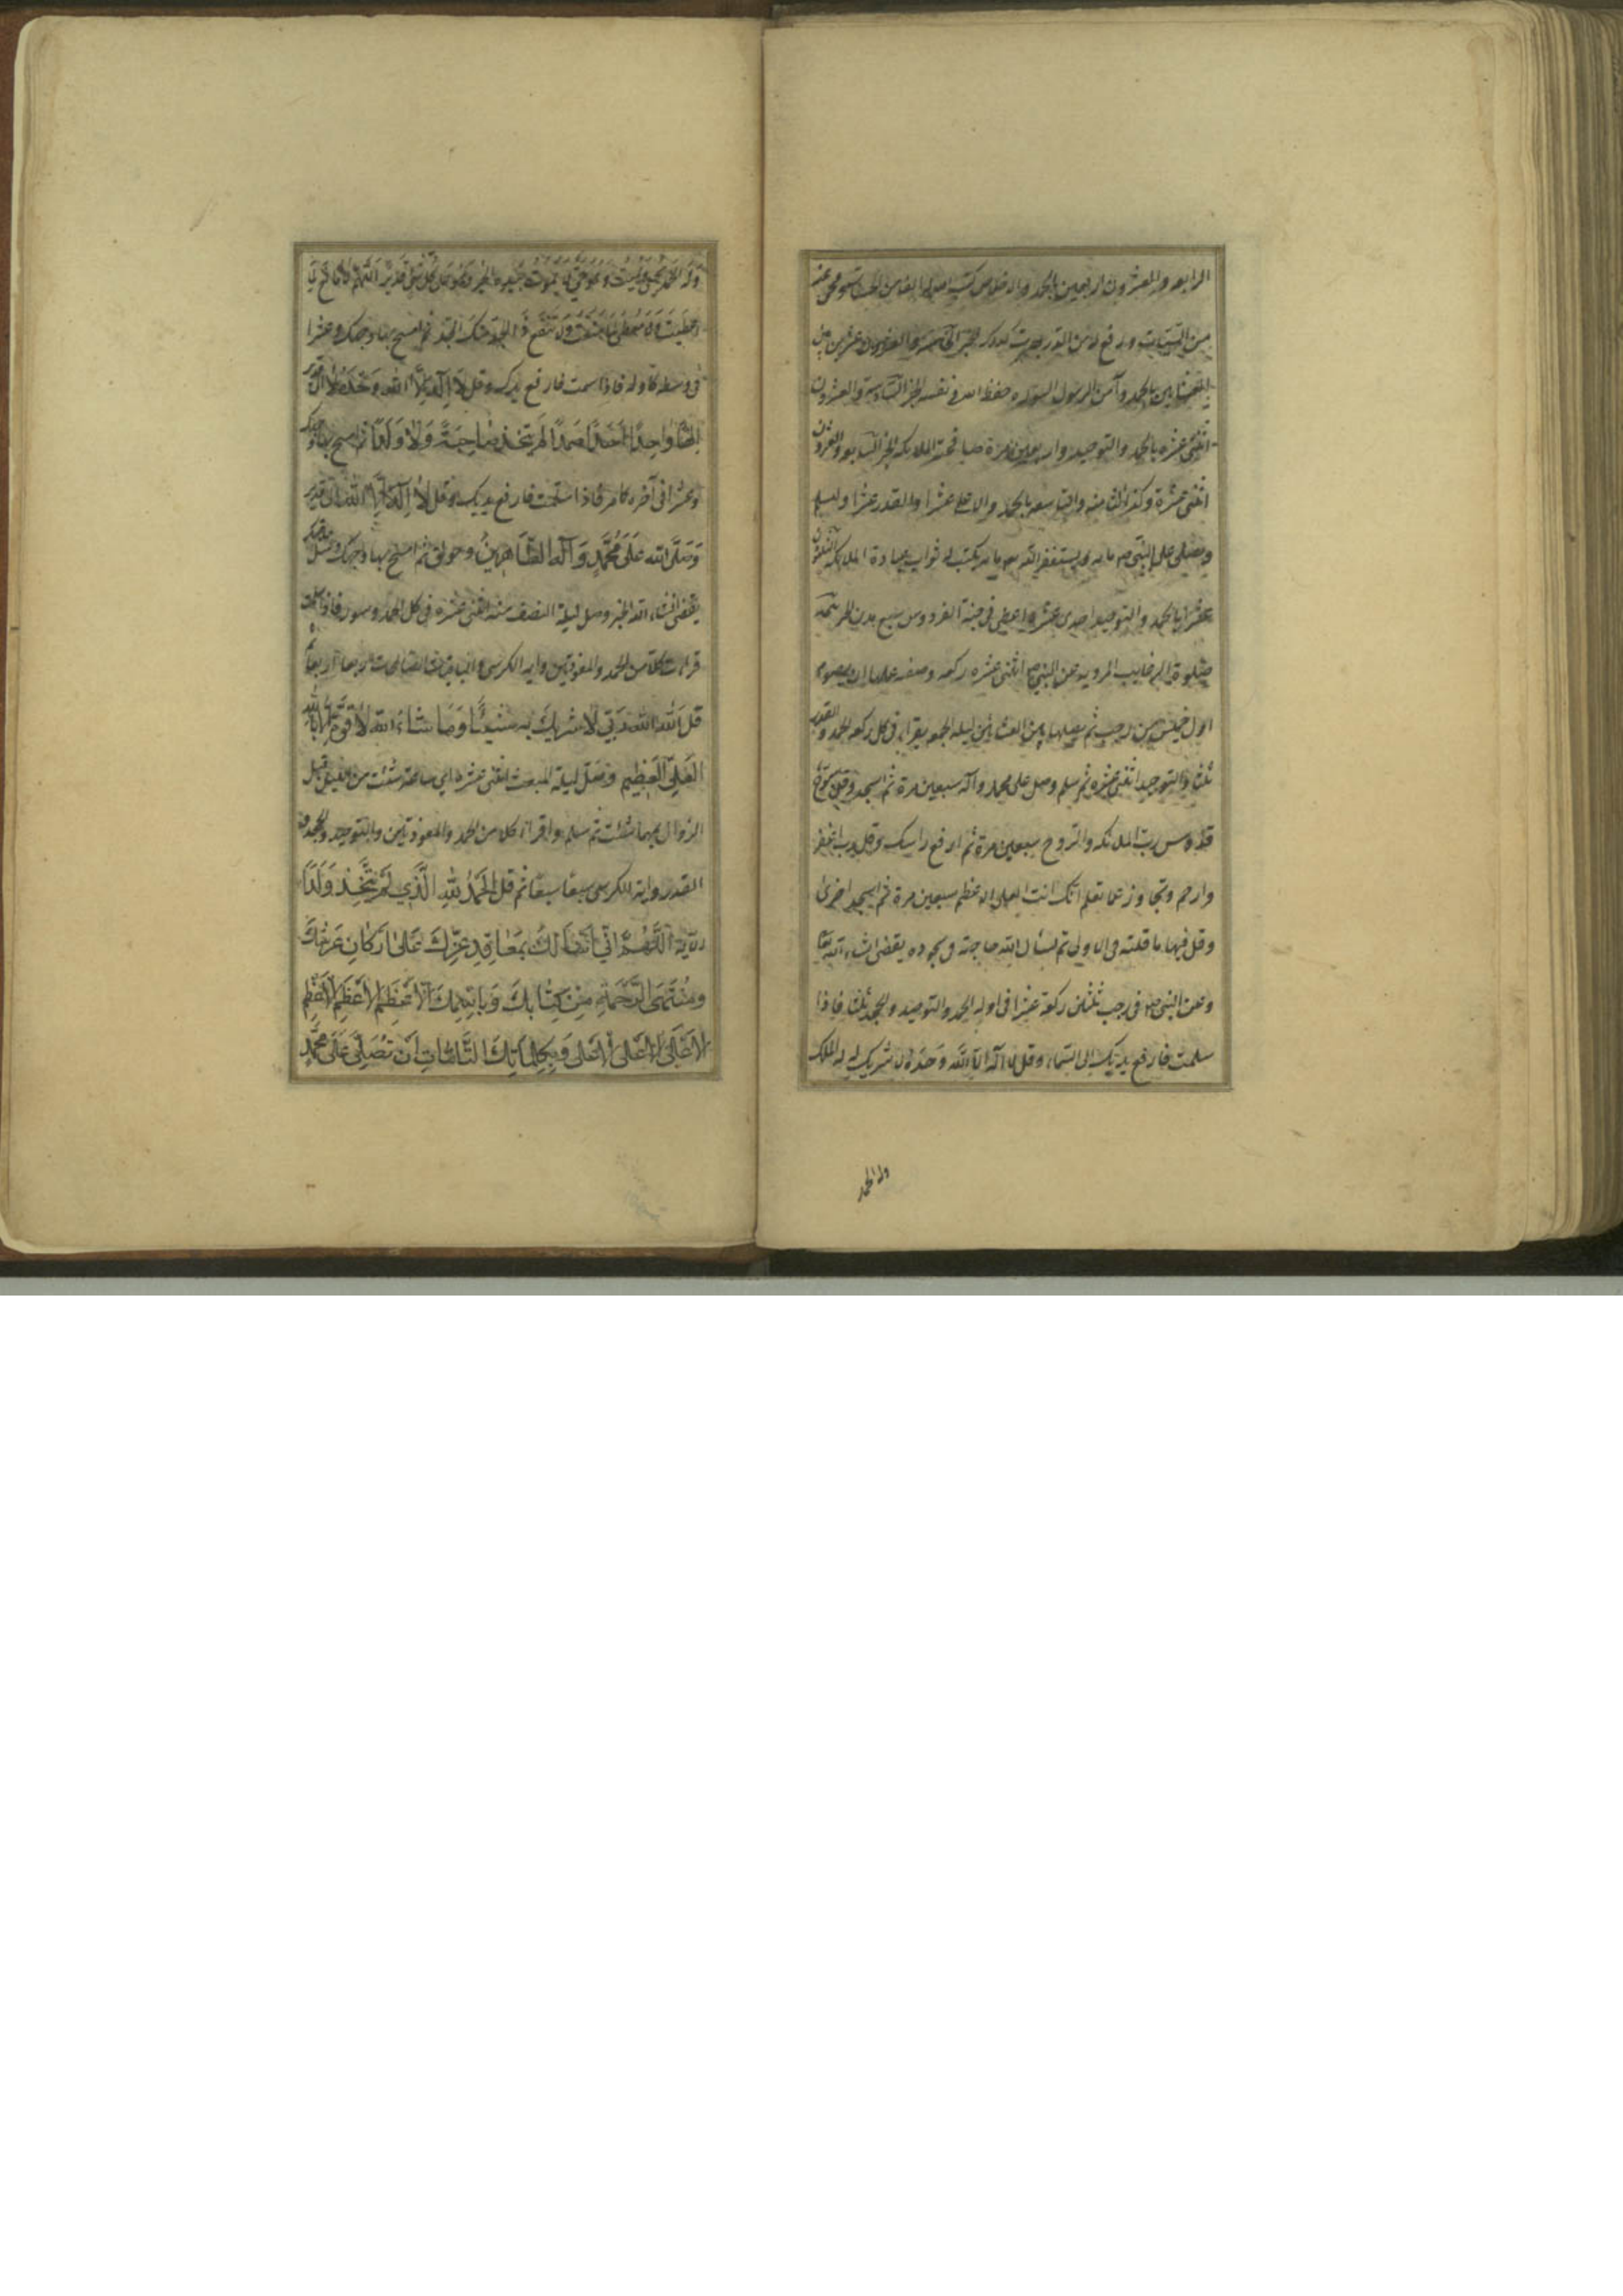 الرابعه والعشرون اربعين بالحمد والاخلاص كتب له الف من الحسنات ومحى عنه
من السيئات ورفع له من الدرجات كذلك الخامسة والعشرون عشرين بين
العشائين بالحمد وآمن الرسول السورة حفظه الله في نفسه الخبر السادسة والعشرون
اثنتى عشره بالحمد والتوحيد واربعين مرة صافحته الملائكه الخبر السابعه والعشرون
اثنتى عشرة وكذا الثامنه والتاسعه بالحمد والاعلى عشرا والقدر عشرا ويسلم
ويصلى على النبي ص مايه ويستغفر الله مايه يكتب له ثواب عبادة الملائكه الثلثون
عشرا بالحمد والتوحيد احدى عشره اعطى في جنة الفردوس سبع مدن الخبر تتمة
صلوة الرغايب المرويه عن النبي ص اثنتى عشره ركعه وصفه عملها ان يصوم
اول خميس من رجب ثم يصليها بين العشائين ليله الجمعه يقرا في كل ركعه الحمد والقدر
ثلثا والتوحيد اثنتى عشره ثم سلم وصل على محمد وآله سبعين مرة ثم اسجد وقل سبوح
قدوس رب الملائكه والروح سبعين مرة ثم ارفع راسك وقل رب اغفر
وارحم وتجاوز عما تعلم انك انت العلى الاعظم سبعين مرة ثم اسجد اخرى
وقل فيها ما قلته في الاولى ثم تسال الله حاجته في سجوده يقضى انشاء الله تعا
وعن النبي ص في رجب ثلثين ركعة عشرا في اوله بالحمد والتوحيد والجحد ثلثا فاذا
سلمت فارفع يديك الى السماء وقل لا اله الا الله وحده لا شريك له له الملك
وله الحمد
وله الحمد يحيي ويميت وهو حي لا يموت بيده الخير وهو على كل شئ قدير اللهم لا مانع لما
اعطيت ولا معطي لما منعت ولا ينفع ذا الجد منك الجد ثم امسح بها وجهك وعشرا
في وسطه كاوله فاذا سلمت فارفع يديك وقل لا اله الا الله وحده الى قدير
الها واحدا احدا صمدا لم يتخذ صاحبة ولا ولدا ثم امسح بها وجهك
وعشرا في آخره كامر فاذا سلمت فارفع يديك وقل لا اله الا الله الى قدير
وصلى الله على محمد وآله الطاهرين وحولق ثم امسح بها وجهك وسل حاجتك
يقضى انشاء الله الخبر وصل ليلة النصف منه اثنتى عشره في كل الحمد وسوره فاذا سلمت
قرات كلا من الحمد والمعوذتين وايه الكرسي والباقيات الصالحات اربعا اربعا ثم
قل الله الله ربي لا اشرك به شيئا وما شاء الله لا قوة الا بالله
العلي العظيم وصل ليلة المبعث اثنتى عشره اي ساعة شئت من الليل قبل
الزوال بهما شئت ثم سلم واقرا كلا من الحمد والمعوذتين والتوحيد والجحد و
القدر واية الكرسي سبعا سبعا ثم قل الحمد لله الذي لم يتخذ ولدا
الآية اللهم اني اسالك بمعاقد عزك على اركان عرشك
ومنتهى الرحمة من كتابك وباسمك الاعظم الاعظم الاعظم
الاعلى الاعلى الاعلى وبكلماتك التامات ان تصلي على محمد